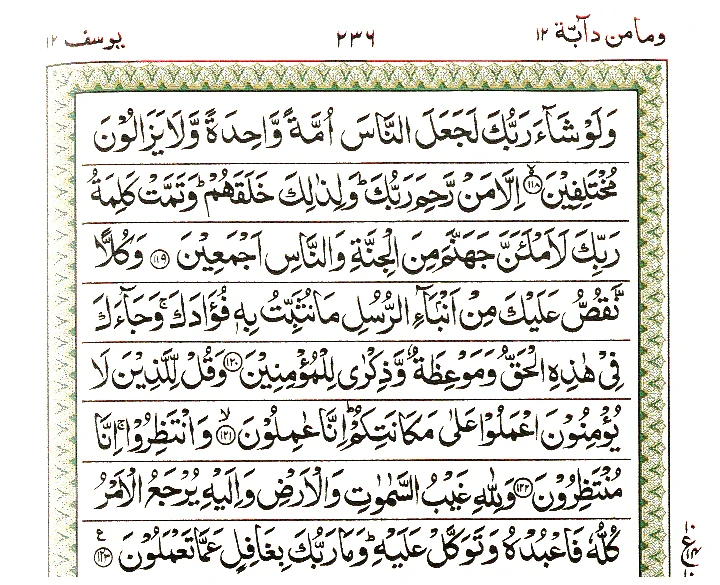 وما من دآبة ۱۲ ۲۳۶ يوسف ۱۲
وَلَوْ شَآءَ رَبُّكَ لَجَعَلَ النَّاسَ اُمَّةً وَّاحِدَةً وَّلَا يَزَالُوْنَ
مُخْتَلِفِيْنَ ۙ﴿۱۱۸﴾ اِلَّا مَنْ رَّحِمَ رَبُّكَ ؕ وَلِذٰلِكَ خَلَقَهُمْ ؕ وَتَمَّتْ كَلِمَةُ
رَبِّكَ لَاَمْلَـَٔنَّ جَهَنَّمَ مِنَ الْجِنَّةِ وَالنَّاسِ اَجْمَعِيْنَ ﴿۱۱۹﴾ وَكُلًّا
نَّقُصُّ عَلَيْكَ مِنْ اَنْۢبَآءِ الرُّسُلِ مَا نُثَبِّتُ بِهٖ فُؤَادَكَ ۚ وَجَآءَكَ
فِيْ هٰذِهِ الْحَقُّ وَمَوْعِظَةٌ وَّذِكْرٰى لِلْمُؤْمِنِيْنَ ﴿۱۲۰﴾ وَقُلْ لِّلَّذِيْنَ لَا
يُؤْمِنُوْنَ اعْمَلُوْا عَلٰى مَكَانَتِكُمْ ؕ اِنَّا عٰمِلُوْنَ ۙ﴿۱۲۱﴾ وَانْتَظِرُوْا ۚ اِنَّا
مُنْتَظِرُوْنَ ﴿۱۲۲﴾ وَلِلّٰهِ غَيْبُ السَّمٰوٰتِ وَالْاَرْضِ وَاِلَيْهِ يُرْجَعُ الْاَمْرُ
كُلُّهٗ فَاعْبُدْهُ وَتَوَكَّلْ عَلَيْهِ ؕ وَمَا رَبُّكَ بِغَافِلٍ عَمَّا تَعْمَلُوْنَ ﴿۱۲۳﴾ ع